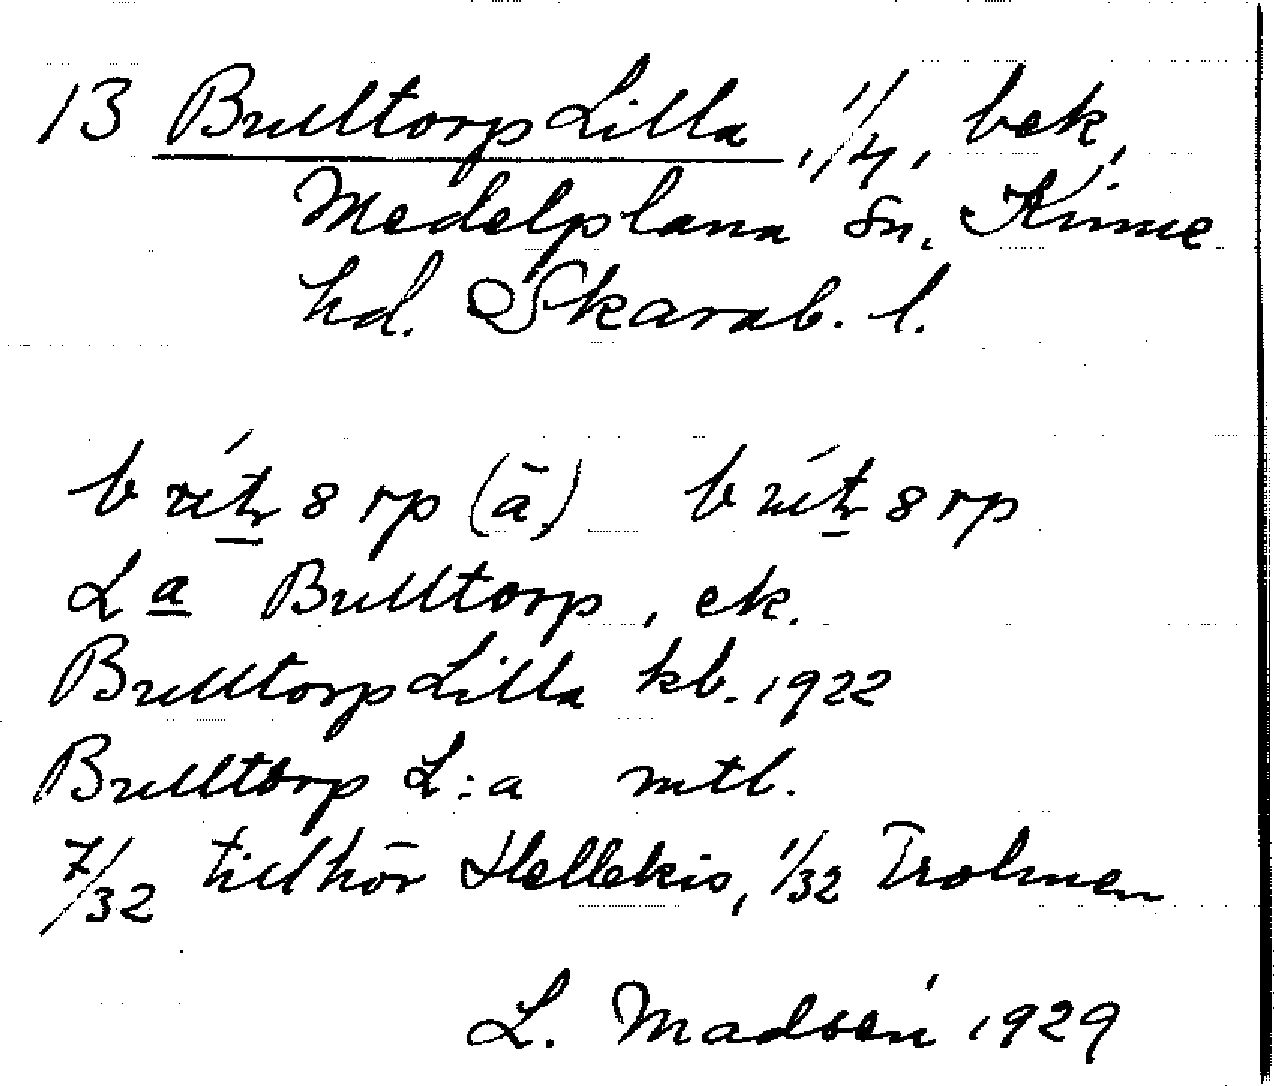 13 Brulltorp Lilla, 1/4, bek,
Medelplana sn. Kinne
hd. Skarab. l.
8 rp (ā) 8 rp
L a Brulltorp, ek.
Brulltorp Lilla kb. 1922
Brulltorp L:a mtl.
7/32 tillhör Hellekis, 1/32 Trolmen
L. Madsén 1929